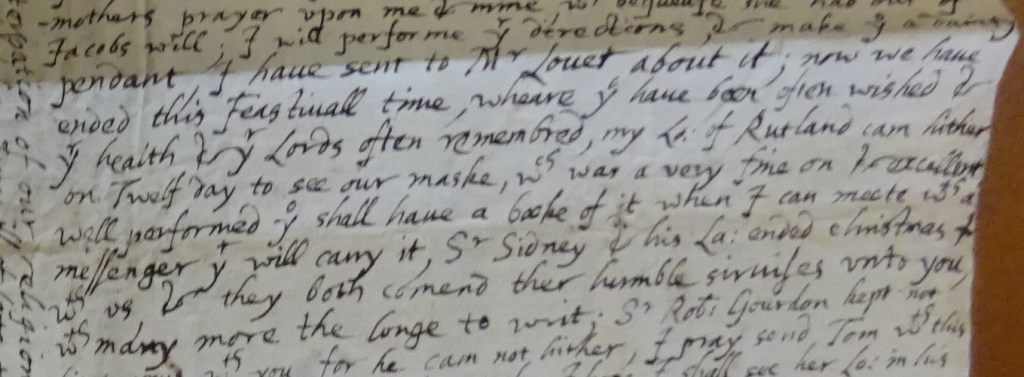 mothers prayer vpon me & mine
Jacobs will; I will performe yr directions, & make
pendant I haue sent to Mr Louet about it; now we haue
ended this Feastiuall time, wheare yu haue been often wished &
yr health & yr Lords often remembred, my Lo: of Rutland cam hither
on Twelf day to see our maske, wch was a very fine on & excellent
well performed yu shall haue a booke of it when I can meete wth a
messenger yt will carry it, Sr Sidney & his La: ended christmas
wth vs & they both comend ther humble siruises vnto you,
wth many more the longe to writ; Sr Robt Gourdon kept not
wth you for he cam not hither, I pray send Tom wth this
shall see her Lo: in his
of our religion